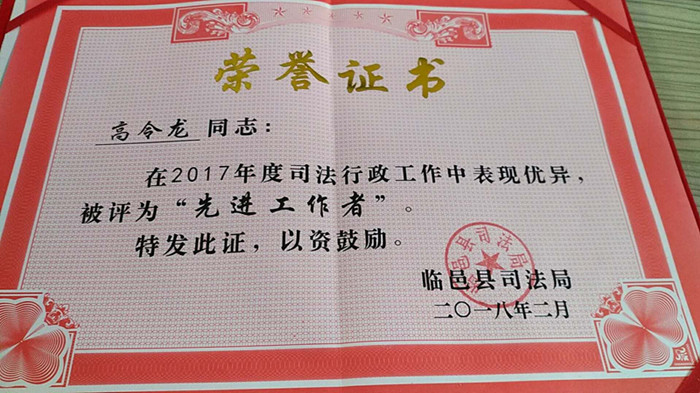 荣誉证书
高令龙 同志：
在2017年度司法行政工作中表现优异，
被评为“先进工作者”。
特发此证，以资鼓励。
临邑县司法局
二〇一八年二月
临邑县司法局